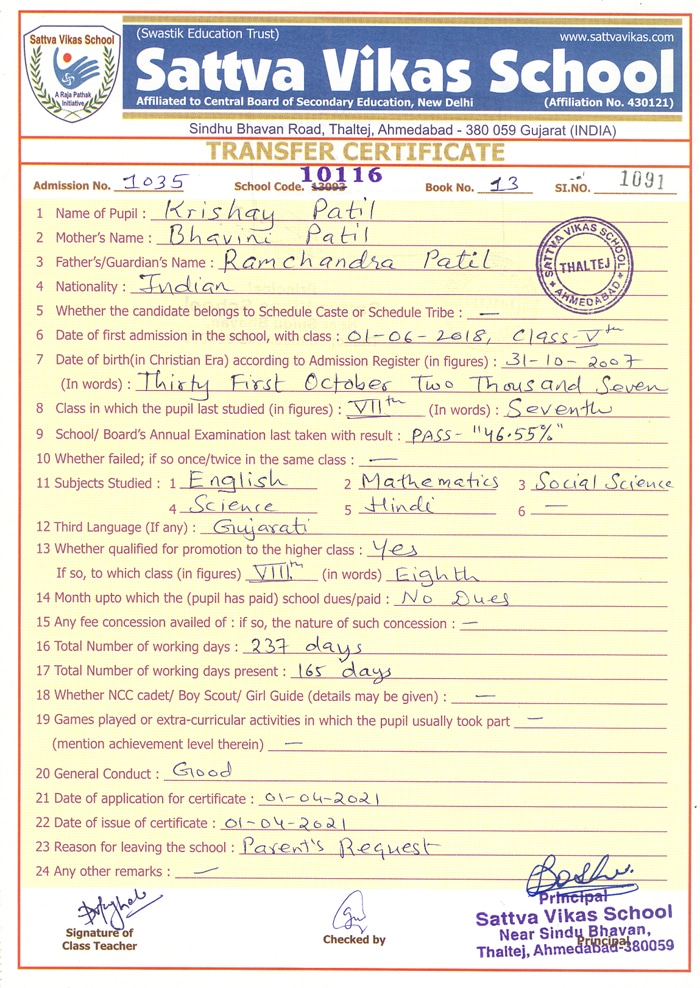 Sattva Vikas School
A Raja Pathak
Initiative
(Swastik Education Trust) www.sattvavikas.com
Sattva Vikas School
Affiliated to Central Board of Secondary Education, New Delhi (Affiliation No. 430121)
Sindhu Bhavan Road, Thaltej, Ahmedabad - 380 059 Gujarat (INDIA)
TRANSFER CERTIFICATE
10116
Admission No. 1035 School Code. 13093 Book No. 13 SI.NO. 1091
1 Name of Pupil : Krishay Patil
2 Mother's Name : Bhavini Patil
3 Father's/Guardian's Name : Ramchandra Patil
SATTVA VIKAS SCHOOL
THALTEJ
AHMEDABAD
4 Nationality : Indian
5 Whether the candidate belongs to Schedule Caste or Schedule Tribe : —
6 Date of first admission in the school, with class : 01-06-2018, Class-Vth
7 Date of birth(in Christian Era) according to Admission Register (in figures) : 31-10-2007
(In words) : Thirty First October Two Thousand Seven
8 Class in which the pupil last studied (in figures) : VIIth (In words) : Seventh
9 School/ Board's Annual Examination last taken with result : PASS- "46.55%"
10 Whether failed; if so once/twice in the same class : —
11 Subjects Studied : 1 English 2 Mathematics 3 Social Science
4 Science 5 Hindi 6 —
12 Third Language (If any) : Gujarati
13 Whether qualified for promotion to the higher class : Yes
If so, to which class (in figures) VIIIth (in words) Eighth
14 Month upto which the (pupil has paid) school dues/paid : No Dues
15 Any fee concession availed of : if so, the nature of such concession : —
16 Total Number of working days : 237 days
17 Total Number of working days present : 165 days
18 Whether NCC cadet/ Boy Scout/ Girl Guide (details may be given) : —
19 Games played or extra-curricular activities in which the pupil usually took part —
(mention achievement level therein) —
20 General Conduct : Good
21 Date of application for certificate : 01-04-2021
22 Date of issue of certificate : 01-04-2021
23 Reason for leaving the school : Parent's Request
24 Any other remarks : —
Signature of
Class Teacher
Checked by
Principal
Sattva Vikas School
Near Sindu Bhavan,
Thaltej, Ahmedabad-380059
Principal